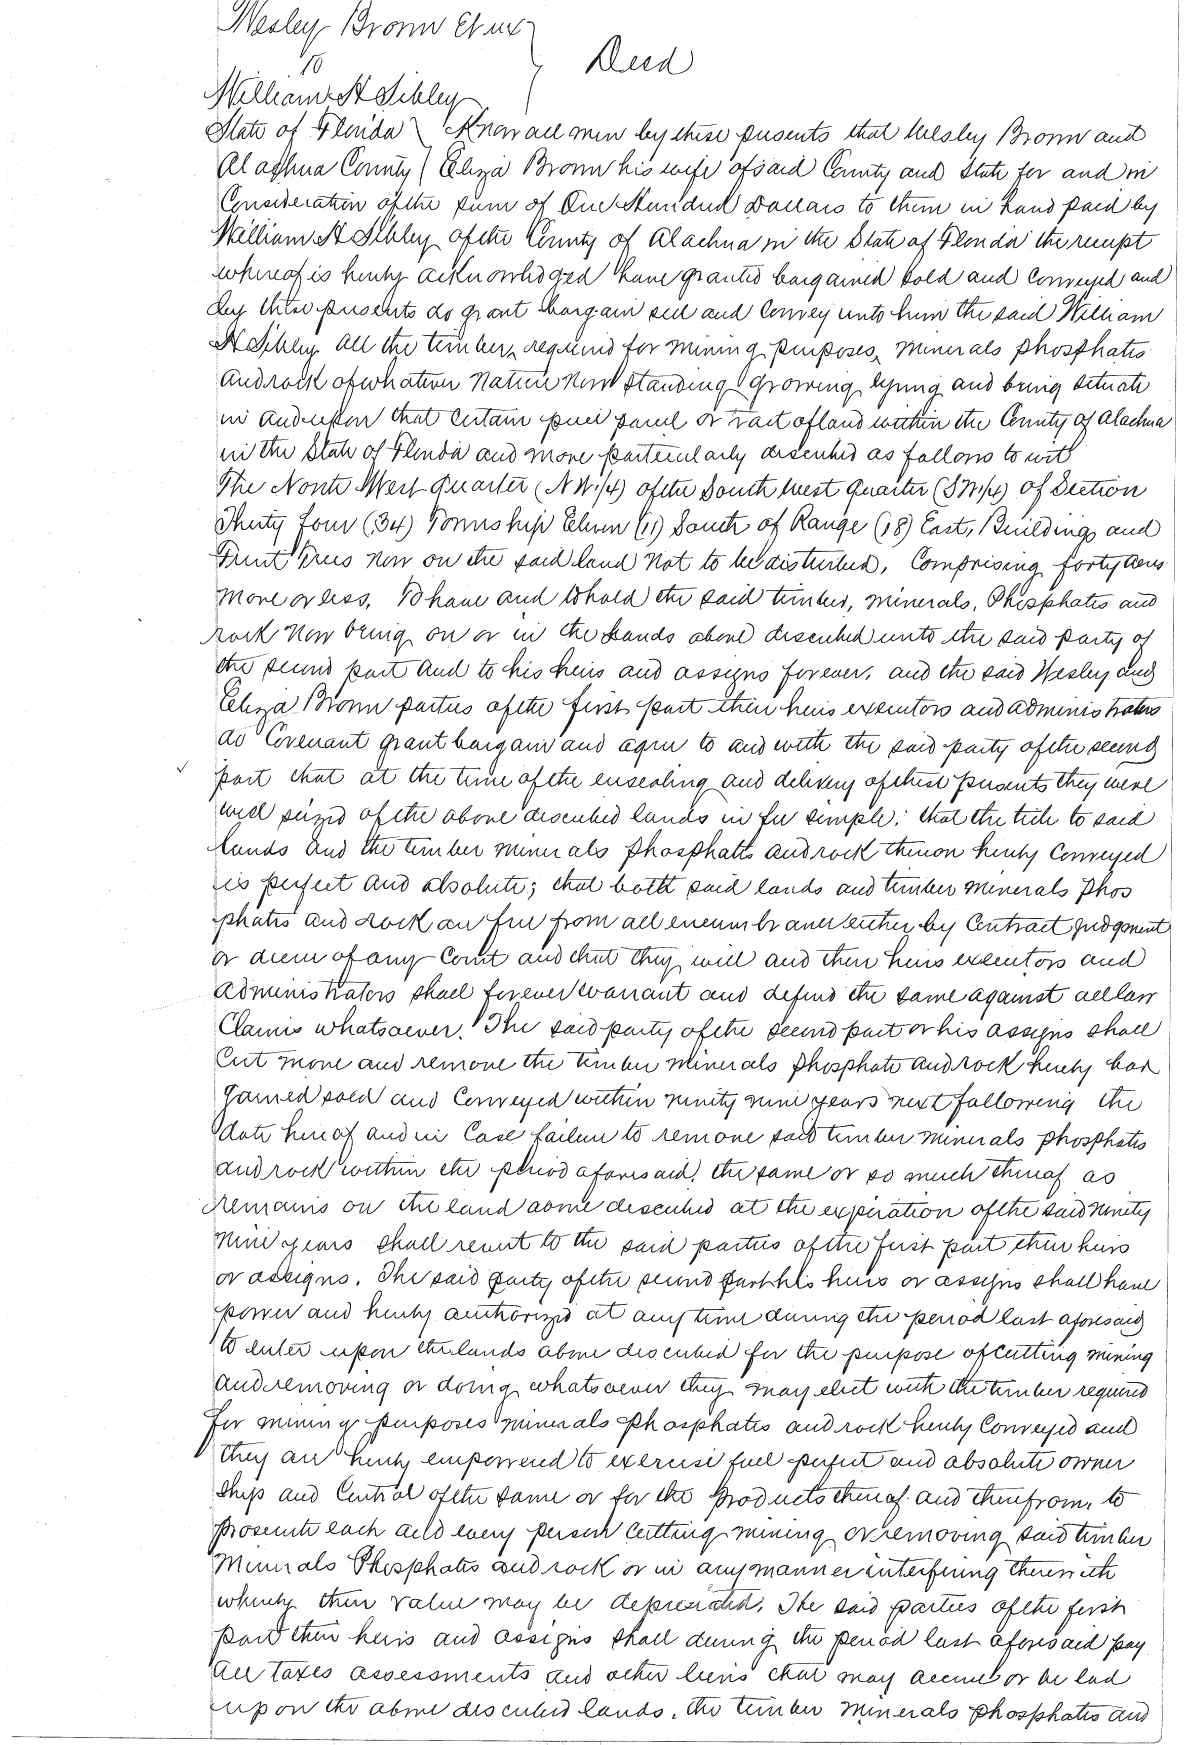 Wesley Brown Et ux
to
Deed
William H Sibley
State of Florida } Know all men by these presents that Wesley Brown and
Alachua County } Eliza Brown his wife of said County and State for and in
Consideration of the sum of One Hundred Dollars to them in hand paid by
William H Sibley of the County of Alachua in the State of Florida the receipt
whereof is hereby acknowledged have granted bargained sold and conveyed and
by these presents do grant bargain sell and convey unto him the said William
H Sibley all the timber, required for mining purposes, minerals phosphates
and rock of whatever nature now standing growing lying and being situate
in and upon that certain piece parcel or tract of land within the County of Alachua
in the State of Florida and more particularly described as follows to wit
The North West quarter (N W 1/4) of the South West quarter (S W 1/4) of Section
Thirty four (34) Township Eleven (11) South of Range (18) East, Buildings and
Fruit Trees now on the said land not to be disturbed, Comprising forty acres
more or less. To have and to hold the said timber, minerals, Phosphates and
rock now being on or in the lands above described unto the said party of
the second part and to his heirs and assigns forever, and the said Wesley and
Eliza Brown parties of the first part their heirs executors and administrators
do Covenant grant bargain and agree to and with the said party of the second
part that at the time of the ensealing and delivery of these presents they were
well seized of the above described lands in fee simple; that the title to said
lands and the timber minerals phosphates and rock thereon hereby conveyed
is perfect and absolute; that both said lands and timber minerals phos
phates and rock are free from all encumbrance either by Contract judgment
or decree of any Court and that they will and their heirs executors and
administrators shall forever warrant and defend the same against all law
Claims whatsoever. The said party of the second part or his assigns shall
cut move and remove the timber minerals phosphate and rock hereby bar
gained sold and conveyed within ninety nine years next following the
date hereof and in case failure to remove said timber minerals phosphates
and rock within the period aforesaid, the same or so much thereof as
remains on the land above described at the expiration of the said ninety
nine years shall revert to the said parties of the first part their heirs
or assigns. The said party of the second part his heirs or assigns shall have
power and hereby authorized at any time during the period last aforesaid
to enter upon the lands above described for the purpose of cutting mining
and removing or doing whatsoever they may elect with the timber required
for mining purposes minerals phosphates and rock hereby conveyed and
they are hereby empowered to exercise full perfect and absolute owner
ship and Control of the same or for the products thereof and therefrom, to
prosecute each and every person cutting mining or removing said timber
Minerals Phosphates and rock or in any manner interfering therewith
whereby their value may be depreciated. The said parties of the first
part their heirs and assigns shall during the period last aforesaid pay
all taxes assessments and other liens that may accrue or be laid
upon the above described lands, the timber minerals phosphates and